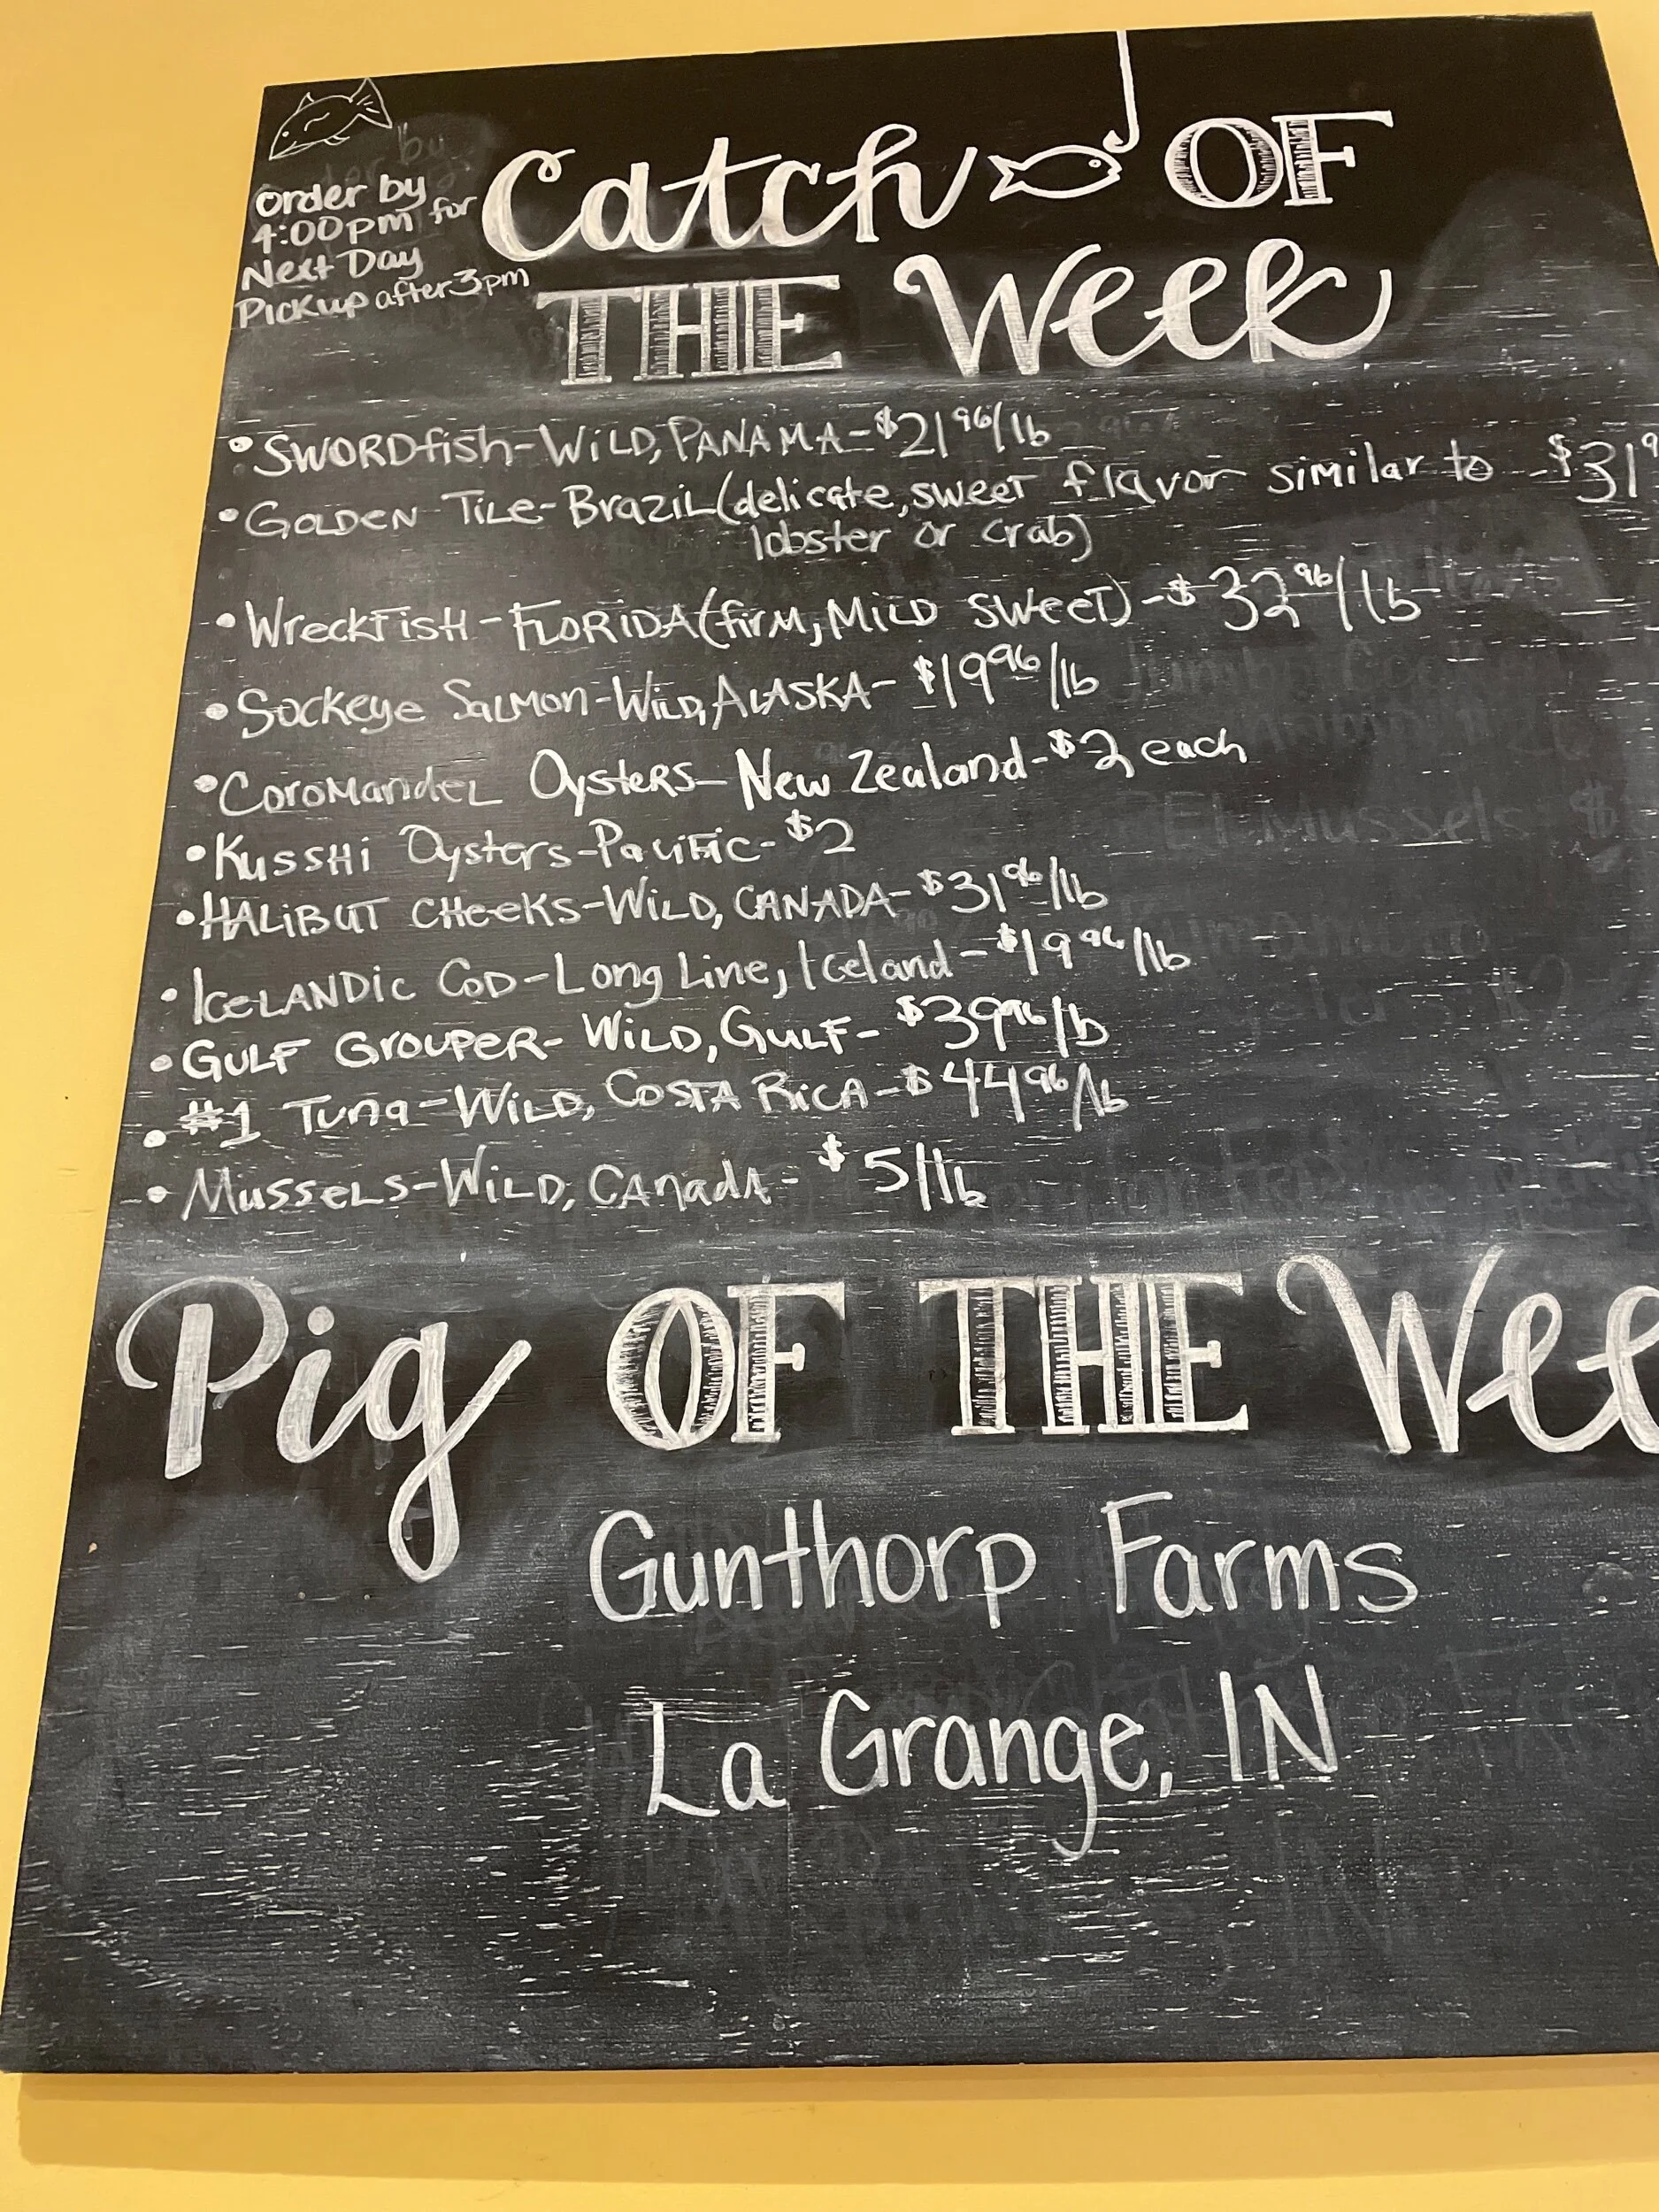 Order by
4:00pm for
Next Day
Pickup after 3pm
Catch OF
THE Week
• SWORDfish-WiLD, PANAMA-$21 96/lb
• GOLDEN Tile-Brazil (delicate, sweet flavor similar to - $31 9
lobster or crab)
• WreckFisH-FLORIDA (firm, MiLD sweet) -$ 32 96/lb
• Sockeye Salmon-Wild, ALASKA- $19 96/lb
• Coromandel Oysters- New Zealand-$2 each
• KussHi Oysters-Pacific-$2
• HALiBUT CHeeKs-WiLD, CANADA-$31 96/lb
• IceLANDic Cod-Long Line, Iceland-$19 96/lb
• GULF GrouPeR- WiLD, GULF- $39 96/lb
• #1 Tuna-WiLD, COSTA RiCA-$44 96/lb
• MusseLs-WiLD, CAnadA- $5/lb
Pig OF THE Wee
Gunthorp Farms
La Grange, IN